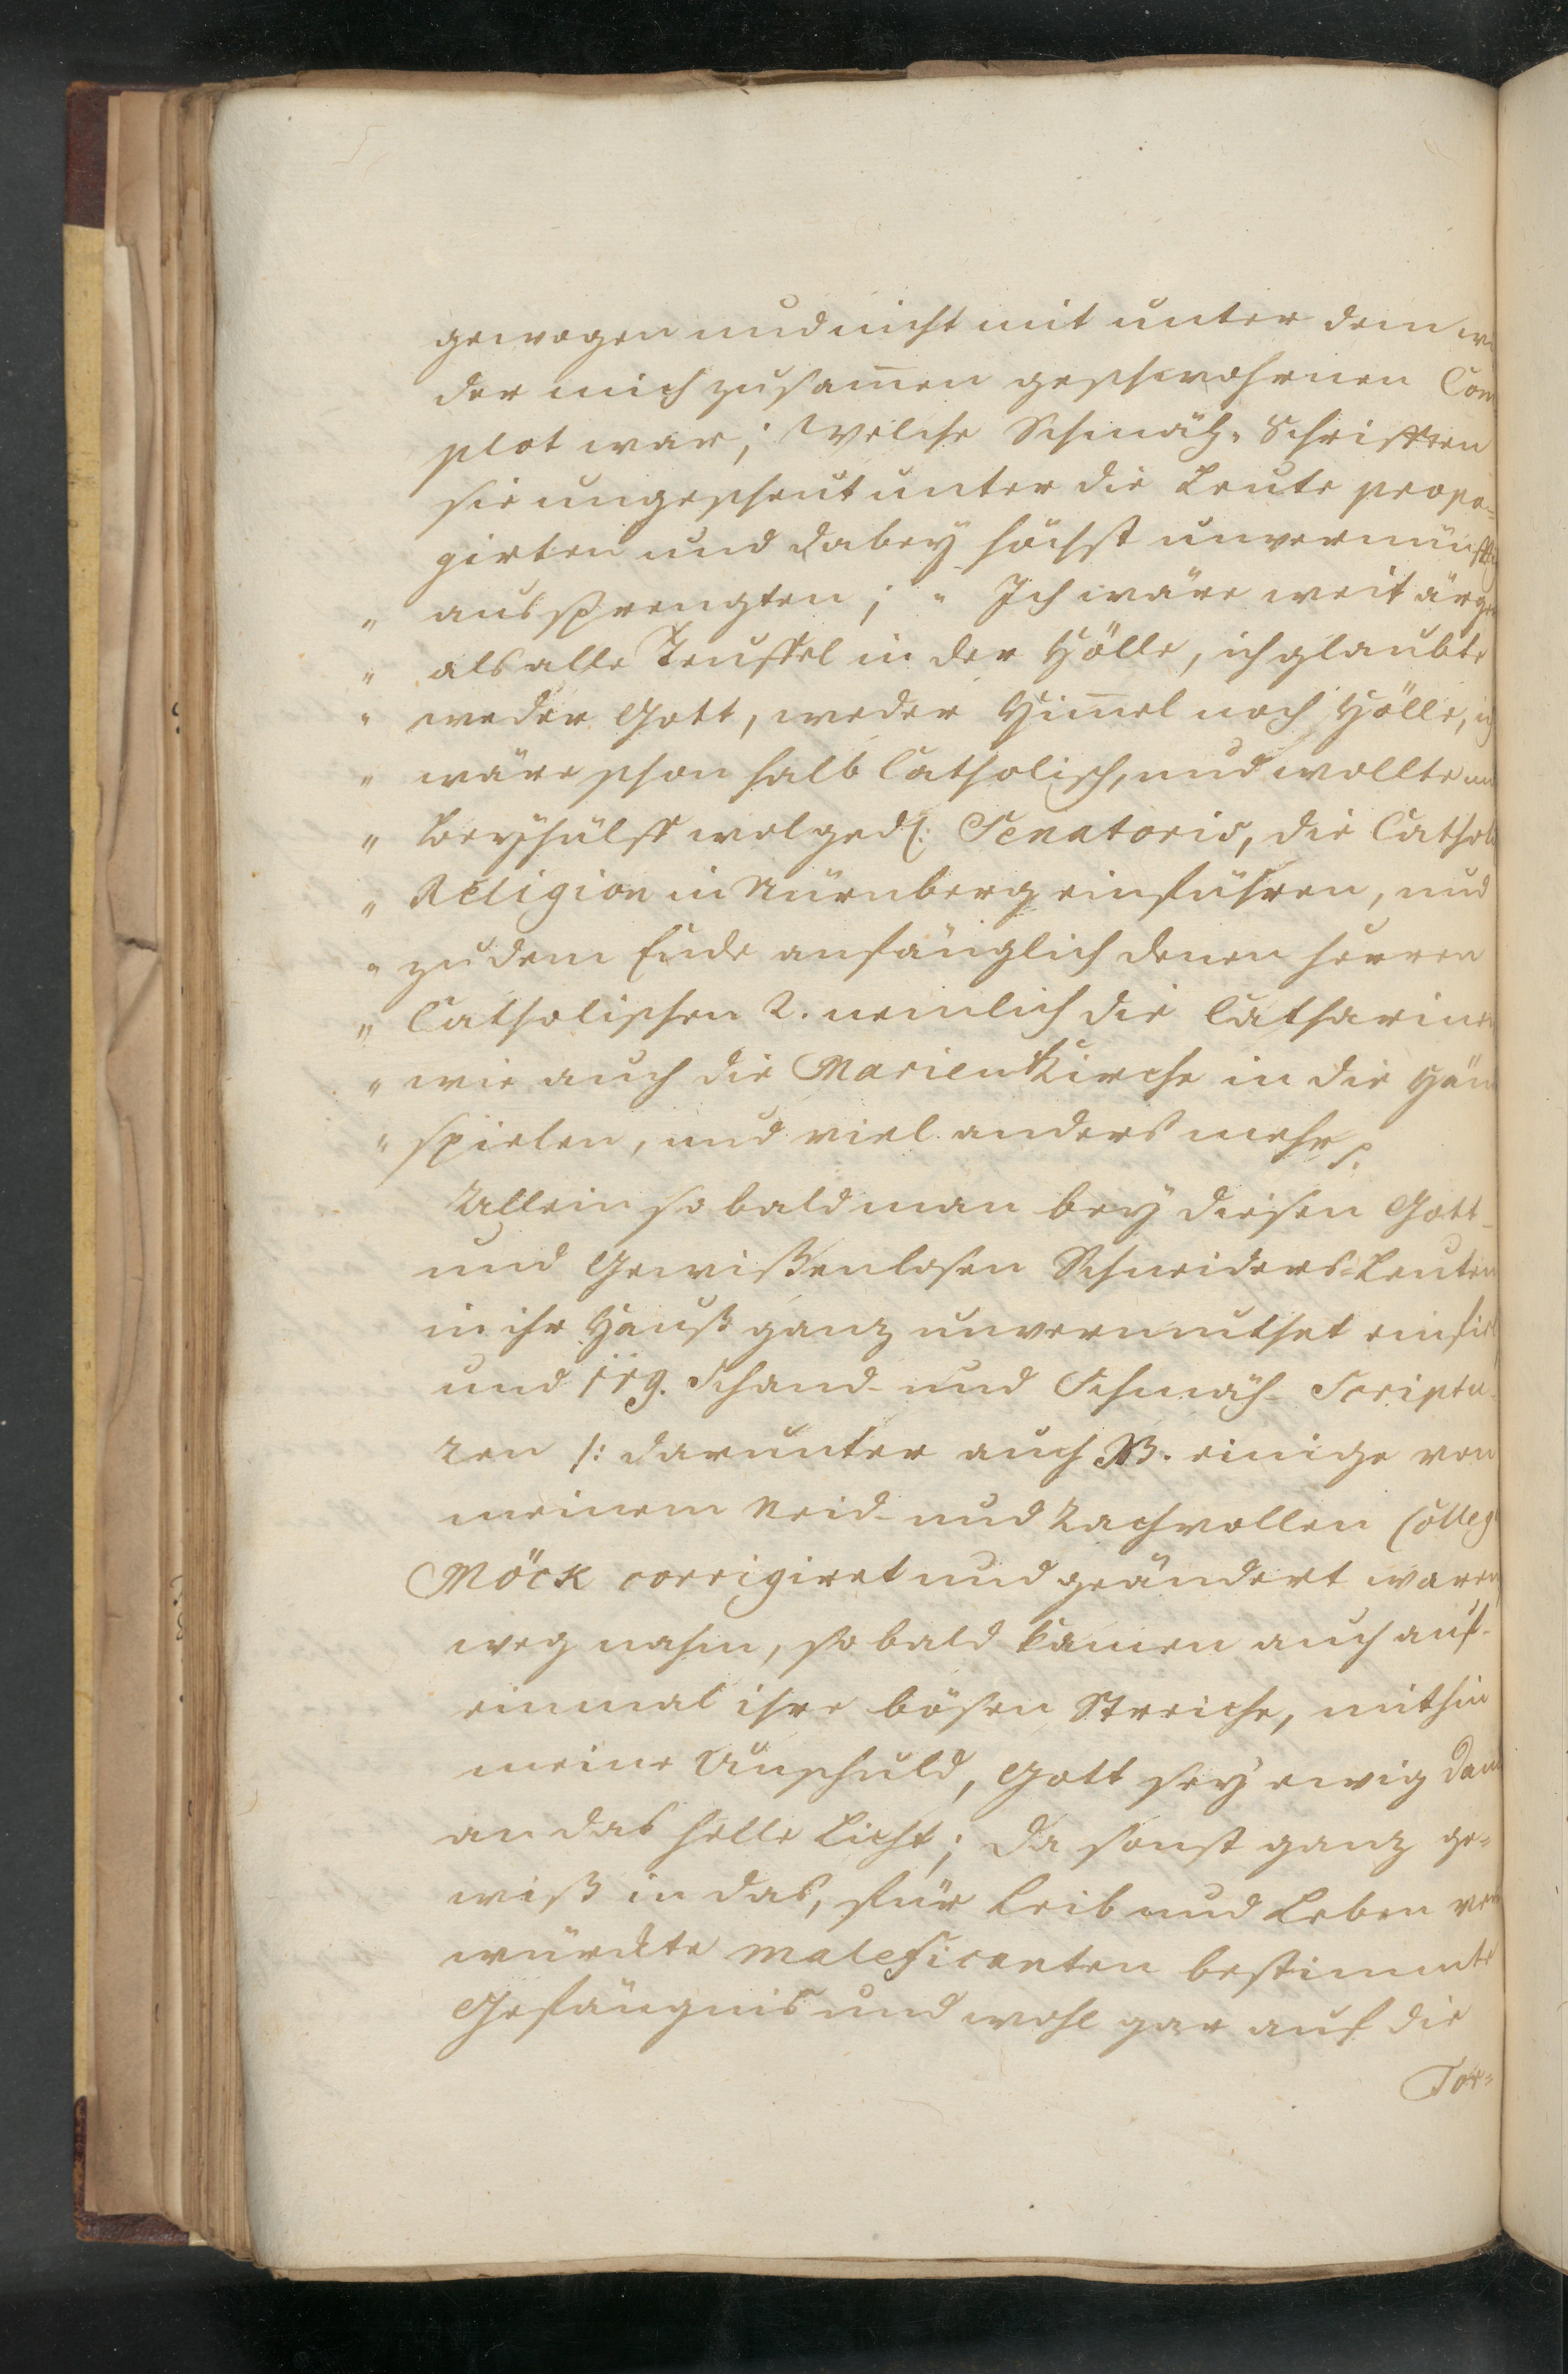 gewogen und nicht mit unter dem wi
der mich zusam̄en geschwohrnen Com
plot war; Welche Schmäh-Schrifften
sie ungescheut unter die Leute propa-
girten und dabey höchst unvernünfftig
„ aussprengten; „ Ich wäre weit ärger
„ als alle Teuffel in der Hölle, ich glaubte
„ weder Gott, weder Him̄el noch Hölle, ich
„ wäre schon halb Catholisch, und wollte
„ Beyhülff wolgedl: Senatoris, die Cathol
„ Religion in Nürnberg einführen, und
„ zu dem Ende anfänglich denen Herren
„ Catholischen 2. nemlich die Catharinen
„ wie auch die Marien Kirche in die Hän
„ spielen, und viel anders mehr
Allein so bald man bey diesen Gott-
und Gewißenlosen Schneiders-Leuten
in ihr Hauß ganz unvermuthet einfiel
und 119. Schand- und Schmäh- Scriptu-
ren /: darunter auch NB. einige von
meinem Neid- und Rachvollen Colleg
Möck corrigiret und geändert waren
weg nahm, so bald kamen auch auf-
einmal ihre bösen Streiche, mithin
meine Unschuld, Gott sey ewig Dank
an das helle Licht; Da sonst ganz ge-
wiß in das, für Leib und Leben ver
würckte maleficanten bestimmte
Gefängnis und wohl gar auf die
Tor-